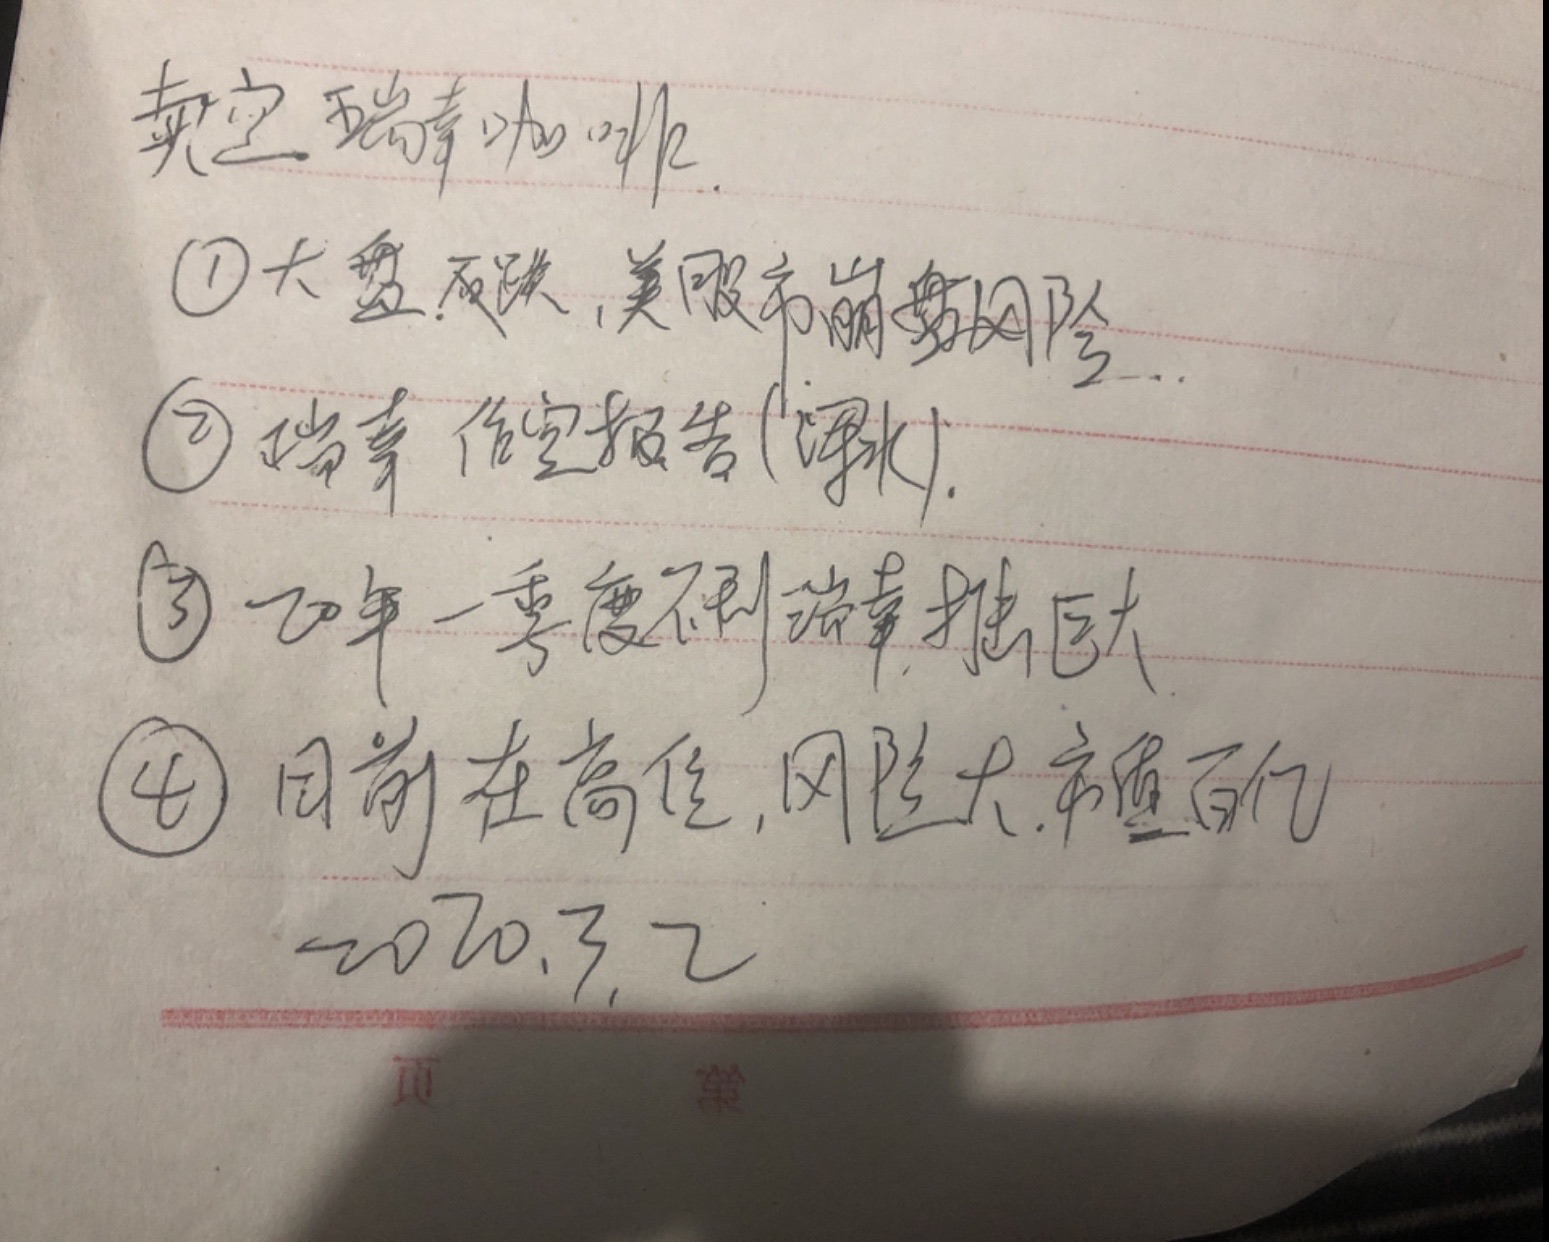 卖空瑞幸咖啡.
①大盘.成跌,美股市崩盘风险..
②瑞幸 作空报告(浑水).
③20年一季度不利瑞幸,损巨大
④目前在高位,风险大.市值百亿
2020.3.2
页 第